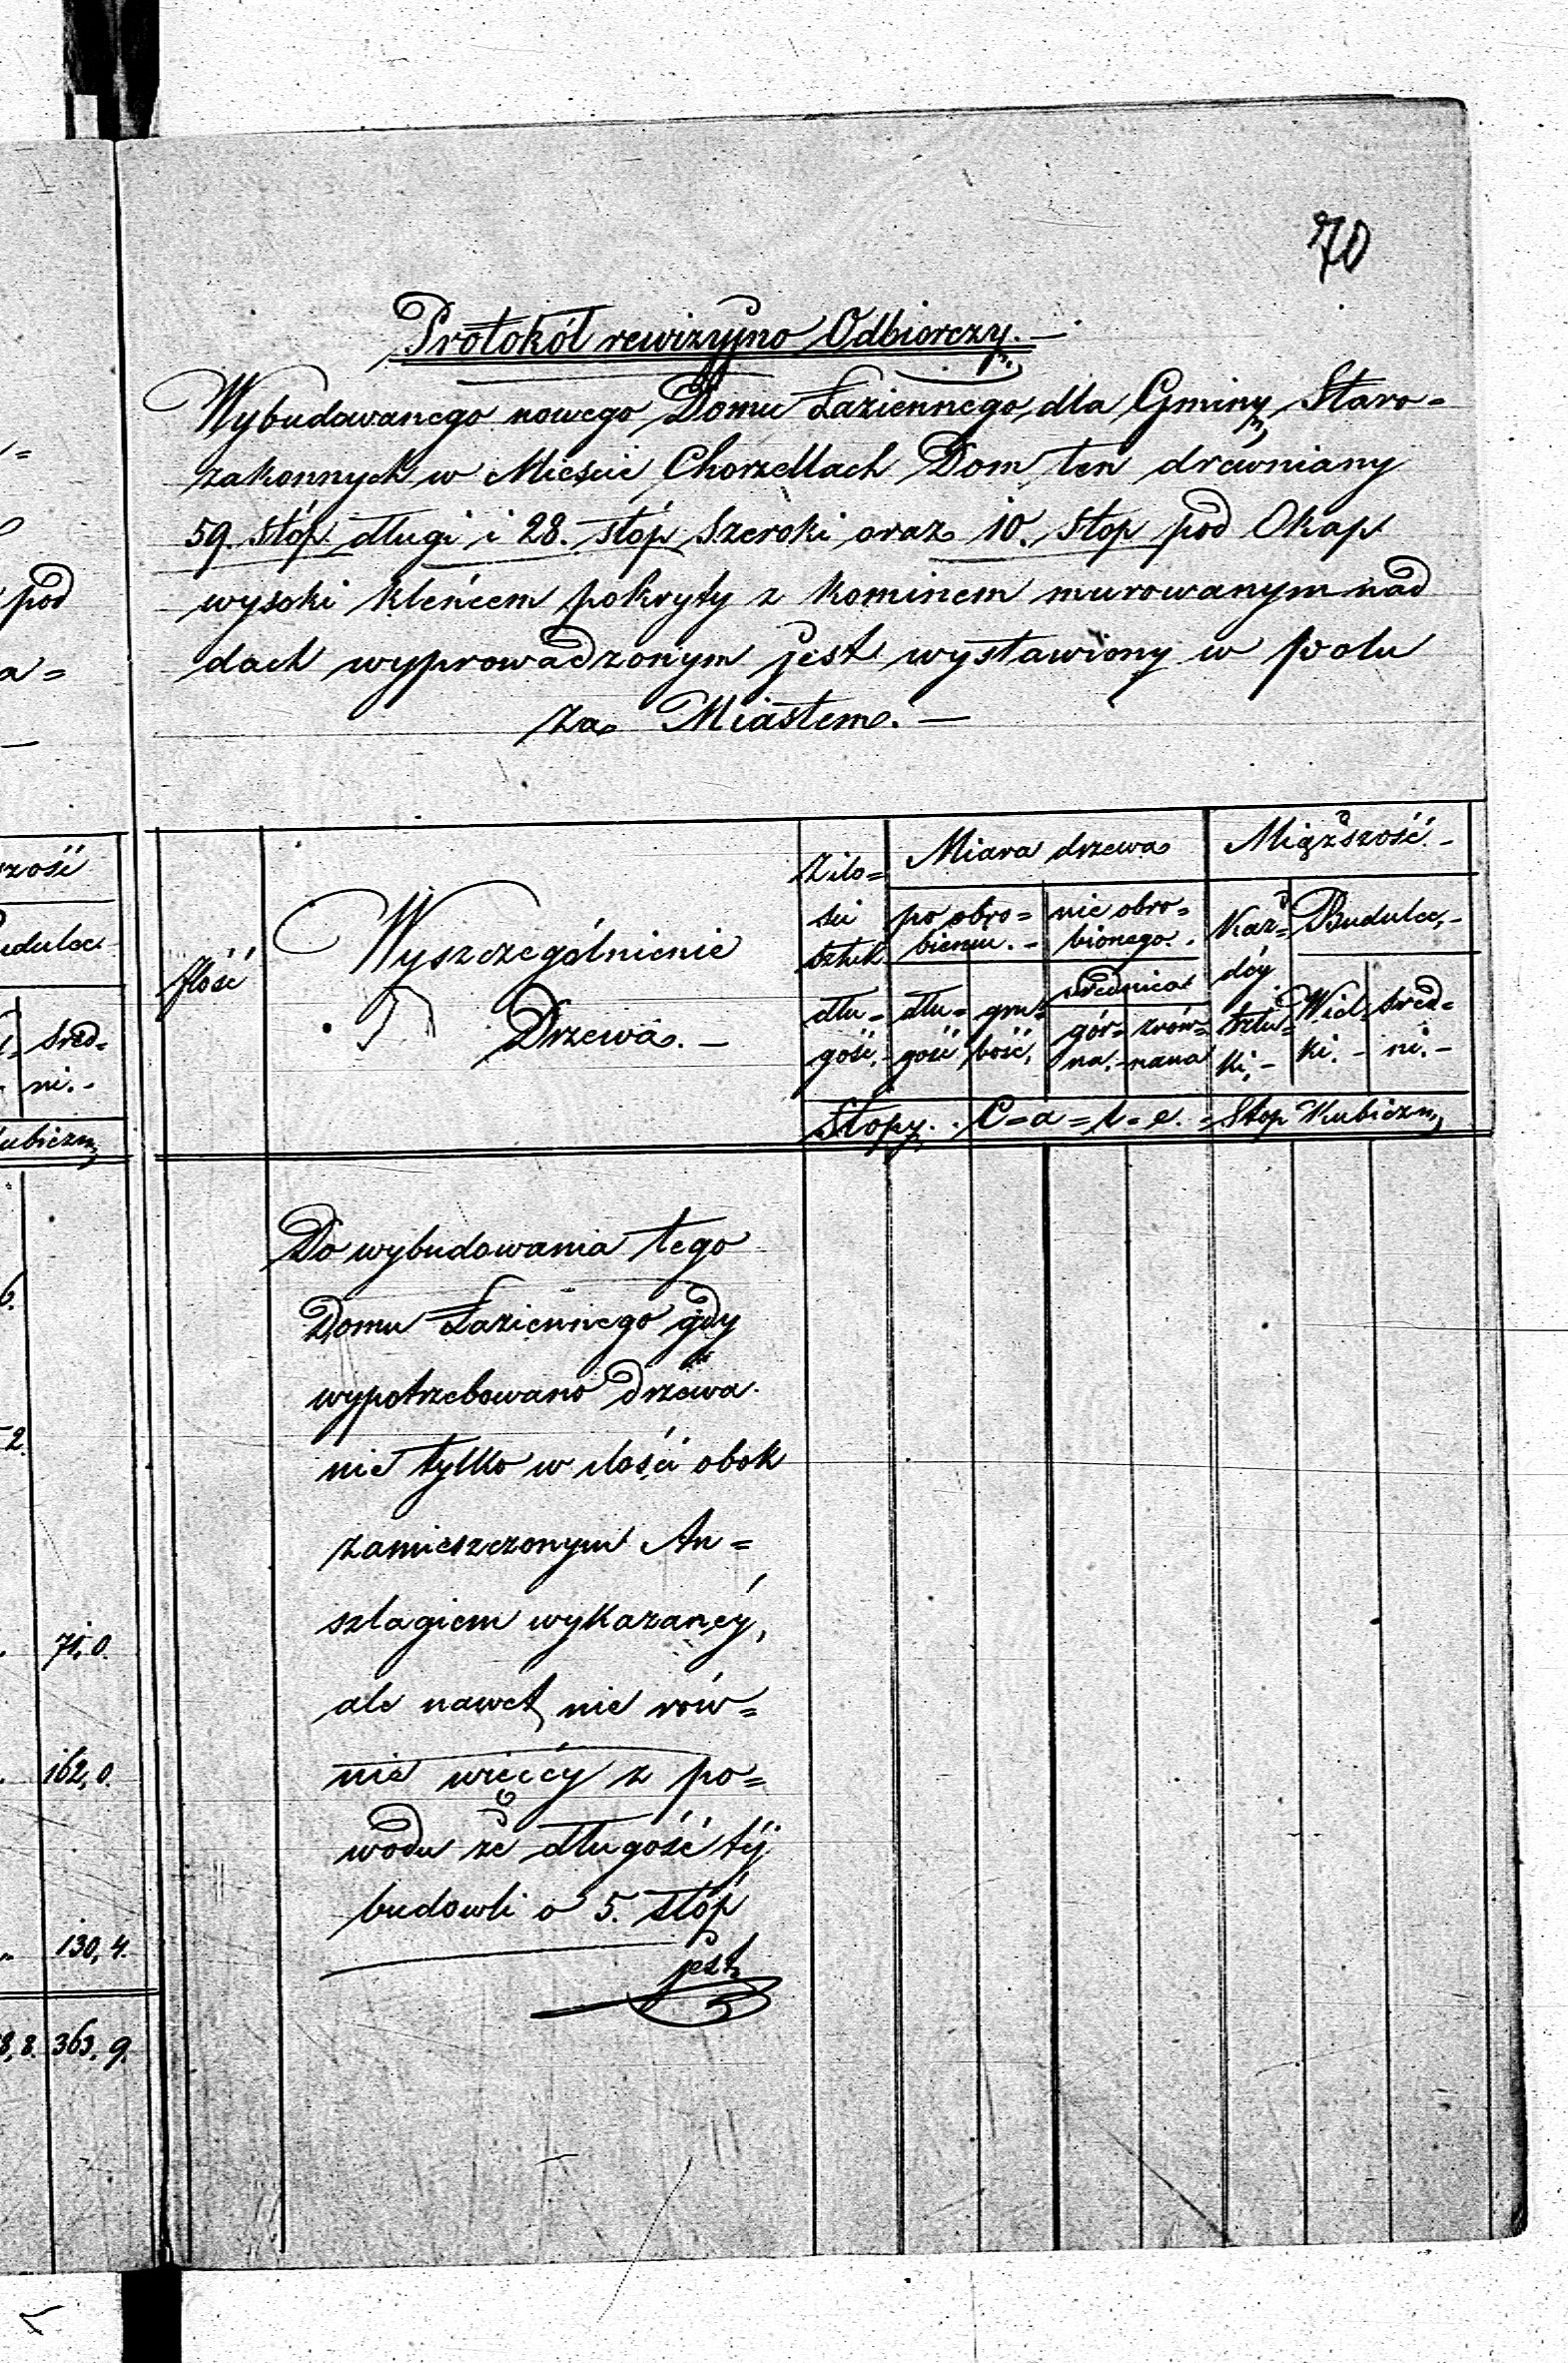 70
Protokół rewizyjno Odbiorczy.-
Wybudowanego nowego Domu Łaziennego, dla Gminy Staro=
zakonnych w Mieście Chorzellach Dom ten drewniany
59. stóp długi i 28. stóp szeroki oraz 10. stóp pod Okap
wysoki kleńcem pokryty z kominem murowanym nad
dach wyprowadzonym jest wystawiony w polu
za Miastem.-
Ilość
Wyszczególnienie
Drzewa.-
Z ilo=
ści
sztuk
dłu=
gość.-
Miara drzewa
po obro=
bieniu.-
dłu=
gość
gru=
bość,
nie obro=
bionego.
średnica
gór=
na.-
zrów=
nana
Miąższość.-
Każ=
déy
sztu=
ki,-
Budulec,-
Wiel=
ki.-
śred=
ni.-
Stopy. C=a=l=e.= Stop Kubiczn,
Do wybudowania tego
Domu Łaziennego gdy
wypotrzebowano drzewa
nie tylko w ilości obok
zamieszczonym An=
szlagiem wykazanéy,
ale nawet nie rów=
nie więcéy z po=
wodu że długość téj
budowli o 5. stóp
jest
zość
udulec
śred=
ni.-
ubiczn,
pod
a=
6.
2.
71,0.
162,0.
130,4.
8,8. 363,9.